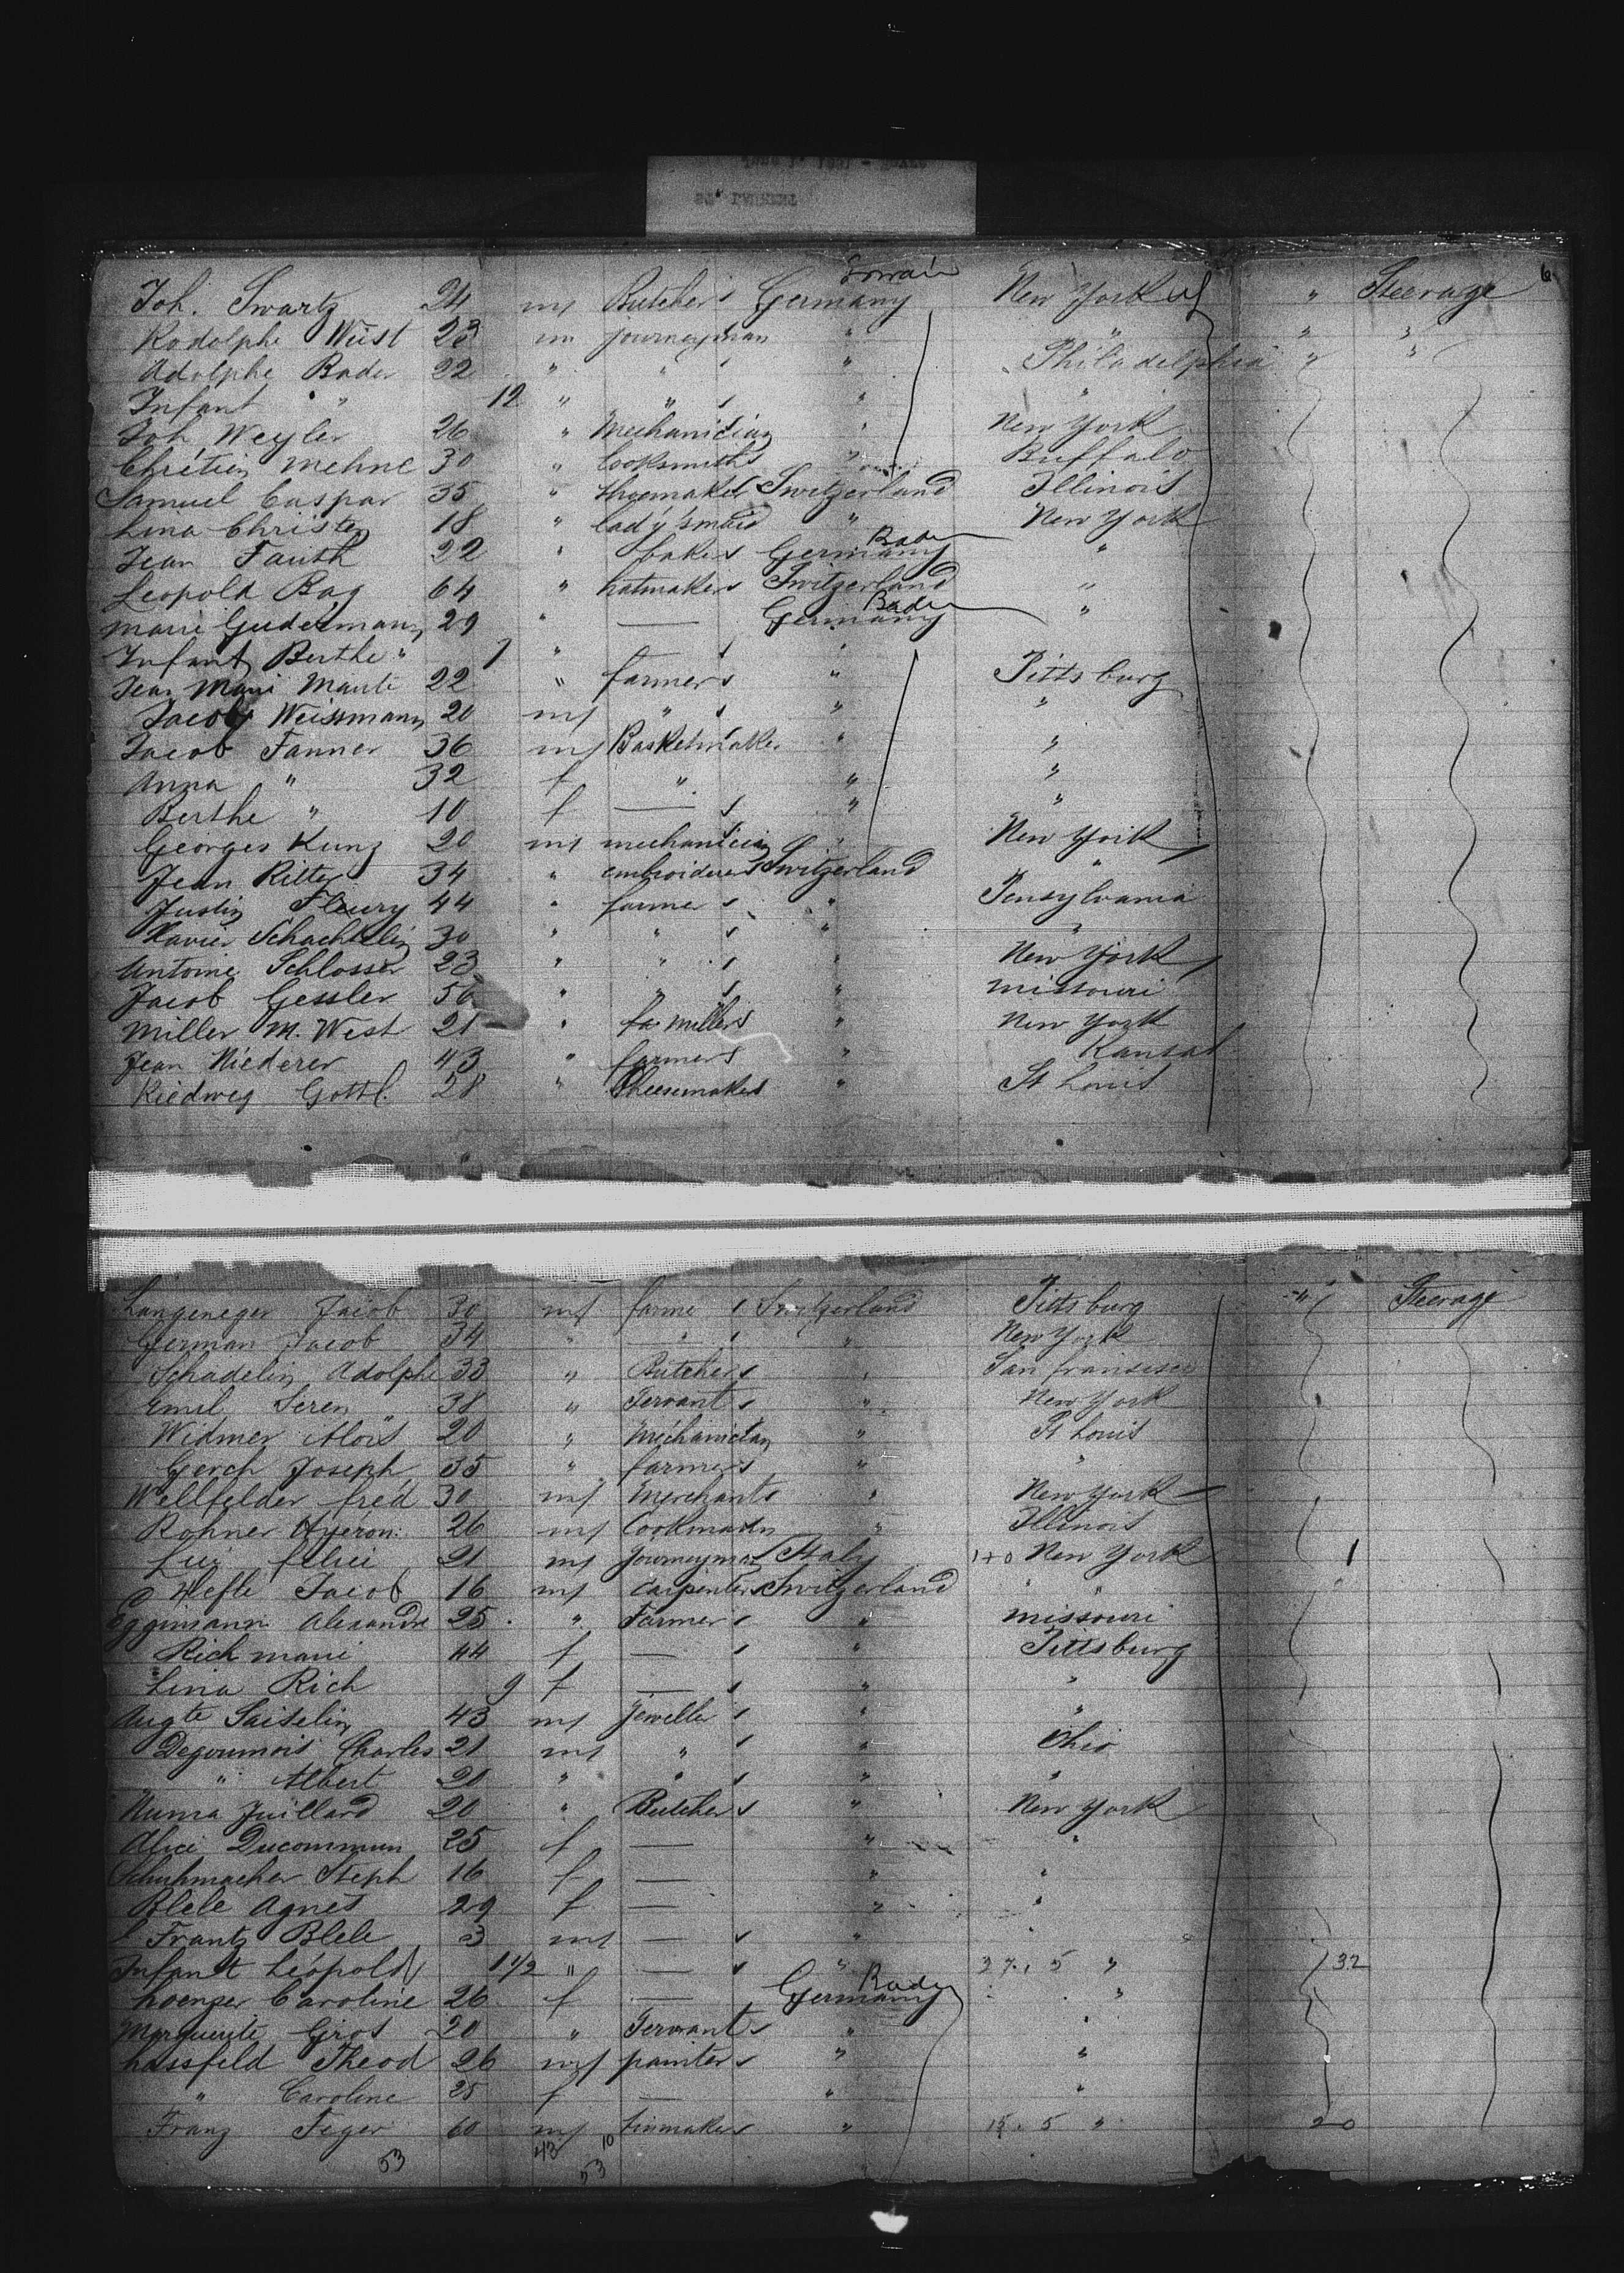 6
Lorrain
Joh. Swartz 24 m/ Butchers Germany New York " Steerage
Rodolphe Wüst 23 m journeyman " " " "
Adolphe Bader 22 " " " Philadelphia " "
Infant " 12 " " " "
Joh. Weyler 26 " Mechanician " New York
Chrétien Mehne 30 " Locksmiths " Buffalo
Samuel Caspar 35 " Shoemaker Switzerland Illinois
Lina Christen 18 " lady'smaid " New York
Jean Fauth 22 " bakers Germany Baden "
Leopold Bag 64 " hatmakers Switzerland "
Marie Gudesmann 29 " — Germany Baden "
Infant Berthe " 7 " "
Jean Marie Mante 22 " farmers " Pittsburg
Jacob Weissmann 20 m/ " " "
Jacob Fanner 36 m/ Basketmaker " "
Anna " 32 f " " "
Berthe " 10 f — " "
Georges Kunz 20 m/ mechanician " New York
Jean Ritter 34 " embroiderers Switzerland "
Justin Fleury 44 " farmers " Pensylvania
Xavier Schachtelin 30 " " " "
Antoine Schlosser 23 " " " New York
Jacob Gessler 56 " " " Missouri
Miller M. West 21 " millers " New York
Jean Niederer 43 " farmers " Kansas
Riedweg Gottl. 28 " Cheesemakers " St Louis
Langeneger Jacob 30 m/ farmers Switzerland Pittsburg " Steerage
German Jacob 34 " " " New York
Schadelin Adolphe 33 " Butchers " San fransisco
Emil Seren 38 " Servants " New York
Widmer Aloïs 20 " Mechanician " St Louis
Gerch Joseph 35 " farmers " "
Wellfelder fréd 30 m/ Merchants " New York
Rohner Hyeron: 26 m/ " Illinois
Luij felici 21 m/ Journeyman Italy New York 1
Hefle Jacob 16 m/ carpenters Switzerland " "
Eggimann Alexandre 25 " Farmers " Missouri
Rich marie 44 f — " Pittsburg
Lina Rich 9 f — " "
Augte Saiselin 43 m/ Jeweller " "
Degoumois Charles 21 m/ " " Ohio
" Albert 20 " " " "
Numa Juillard 20 " Butchers " New York
Alice Ducommun 25 f — " "
Schuhmacher Steph 16 f — " "
Blele Agnes 29 f — " "
Frantz Blele 3 m/ — " "
Infant Léopold 1 1/2 " — " " 32
Caroline 26 f — Germany Baden "
Marguerite Gros 20 " Servants " "
Hassfeld Theod 26 m/ painters " "
" Caroline 25 f — " "
Franz Feger 60 m/ tinmakers " " 20
53 43 10
53